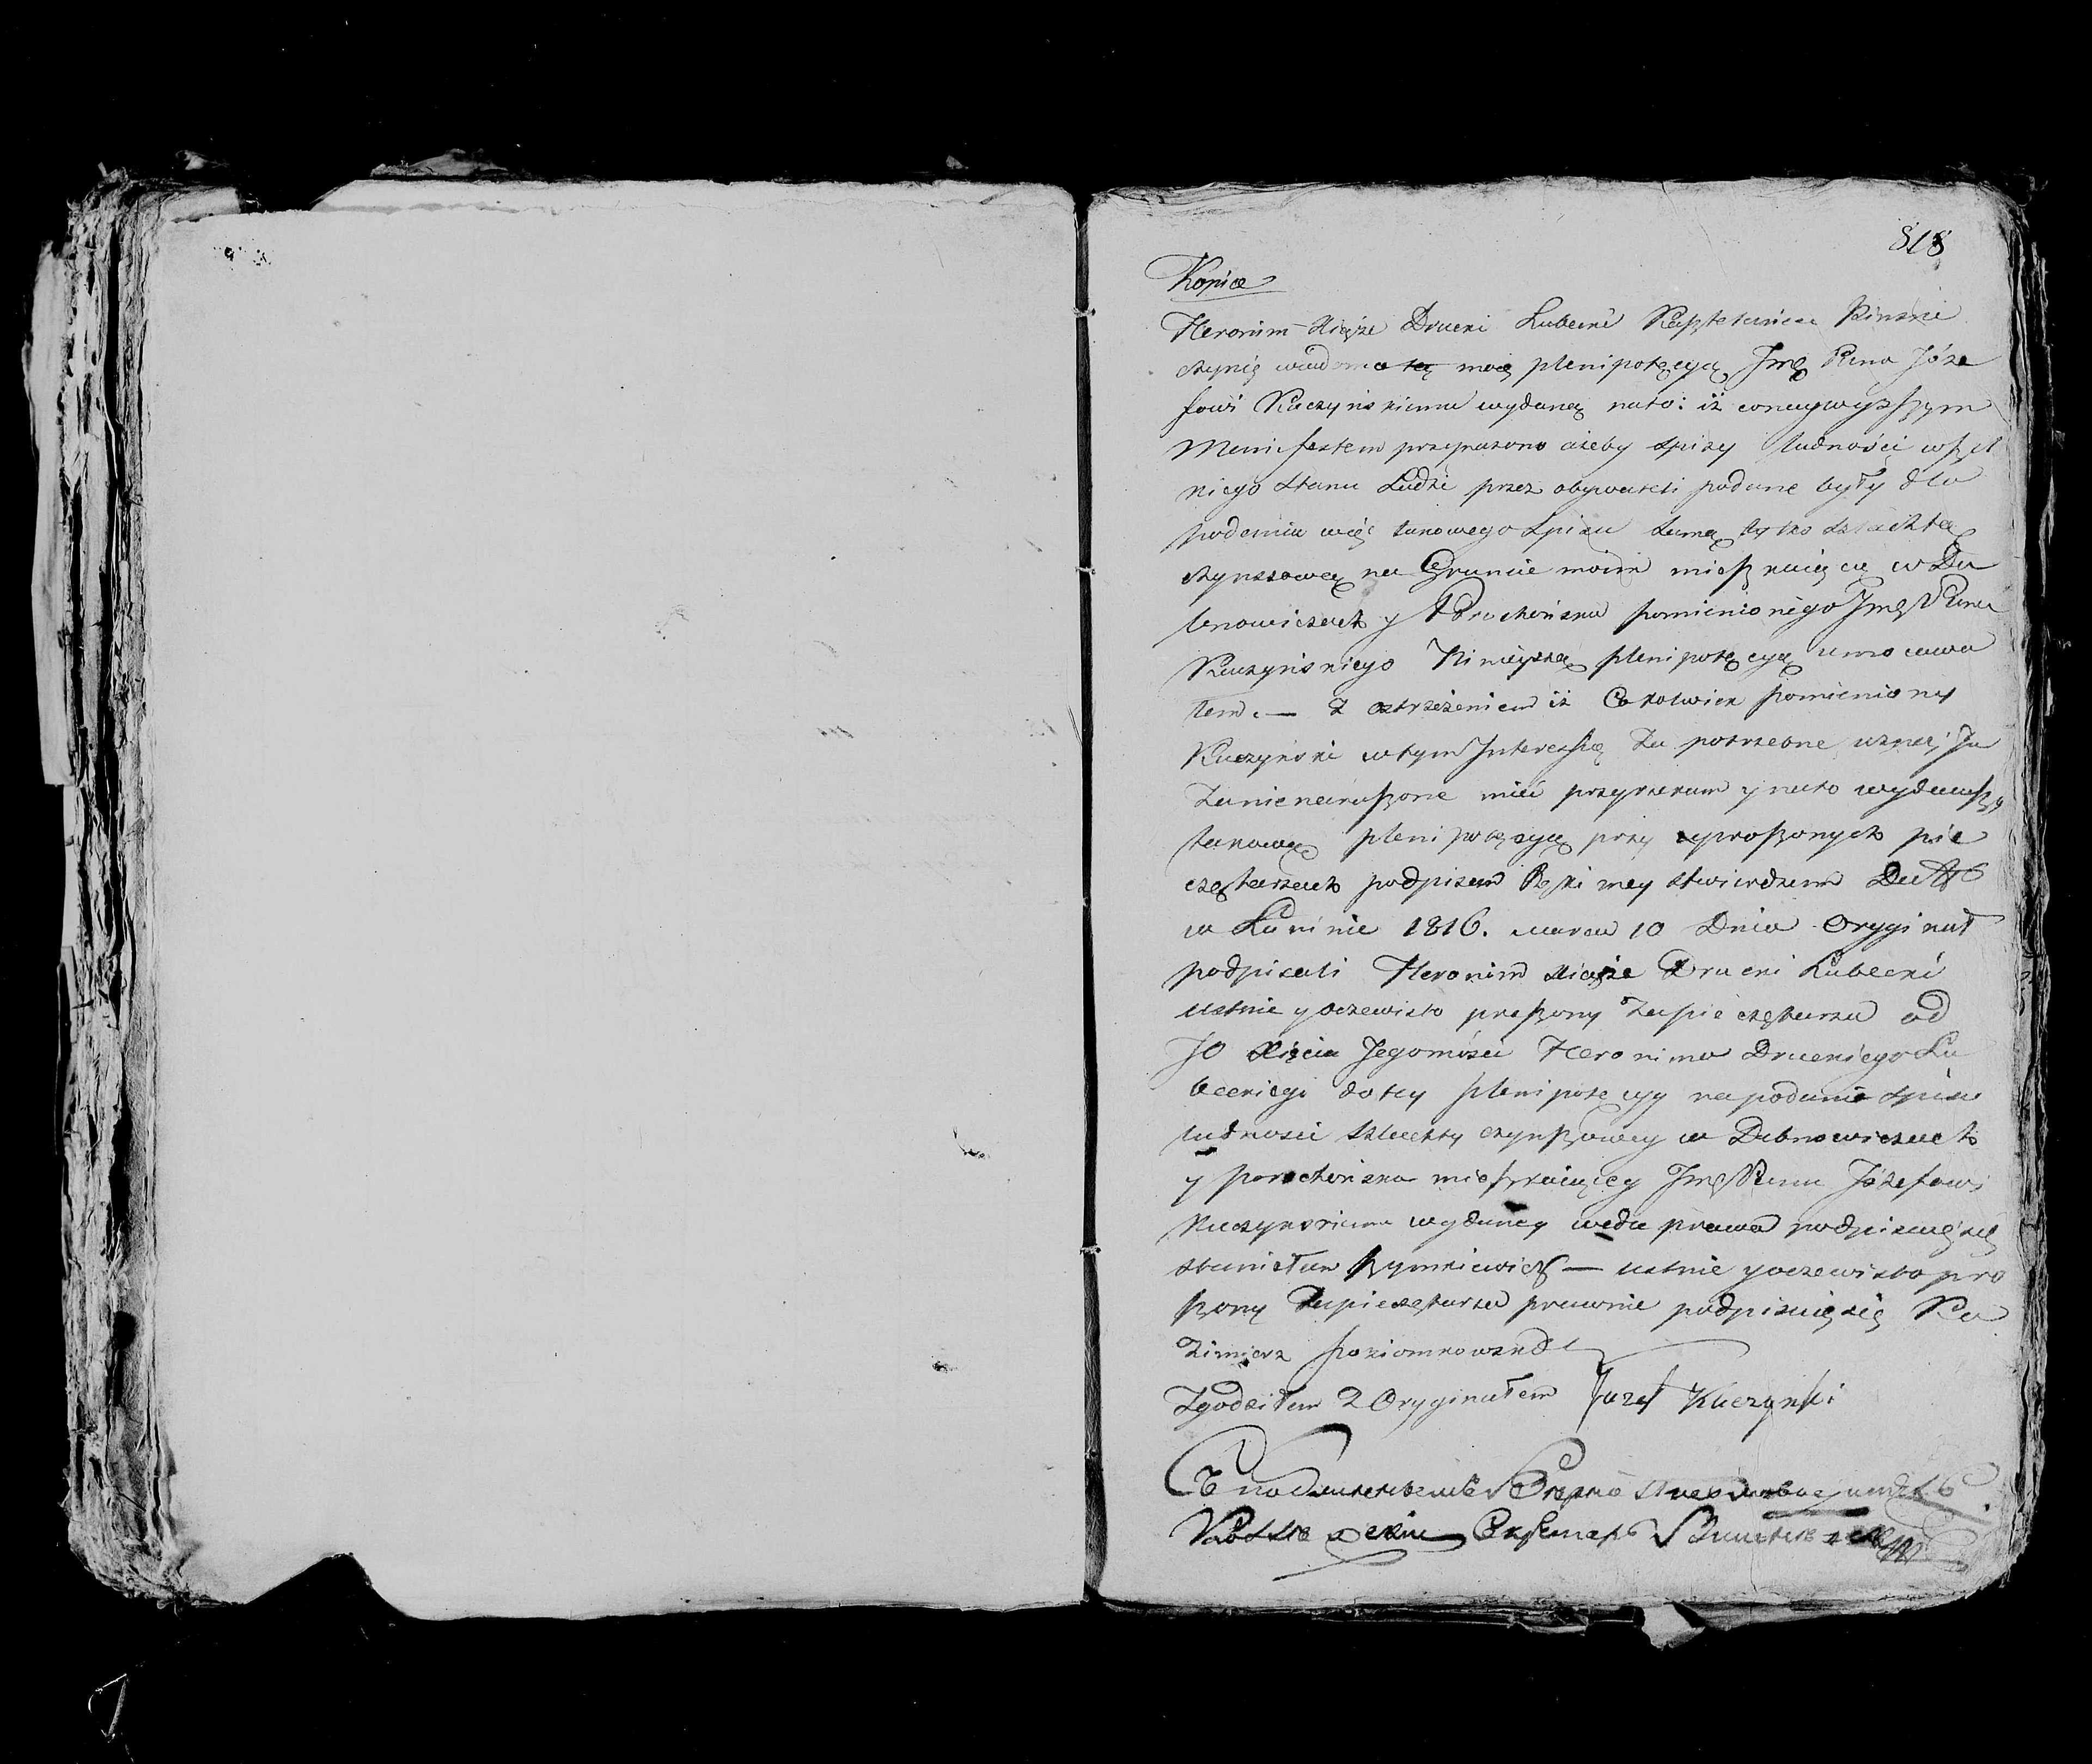 818
Kopia
Heronim Xiąże Drucki Lubecki Kasztelanica Pinski
czynię wiadomo tą moią plenipotęcyą Jmę Panu Józe
fowi Kuczyńskiemu wydaną na to: iż w naywyższym
Manifestem przepisano ażeby spisy ludności wszel
kiego stanu Ludzi przez obywateli podane były dla
podania więc takowego spisu samą tylko szlachtą
czynszową na Gruncie moim mieszkaiącą w Du
bnowiczach y Porochońsku pomienionego Jmę Pana
Kuczyńskiego Ninieyszą plenipotęcyą umocowa
łem. — Z ostrzeżeniem iż Cokolwiek pomieniony
Kuczyński w tym Interessie za potrzebne uzna, Ja
za nienaruszone mieć przyrzekam y na to wydawszy
takową plenipotęcyą przy uproszonych pie
czętarzach podpisem Ręki mey stwierdzam Datt
w Łuninie 1816. marca 10 Dnia Oryginał
podpisali Heronim Xiąże Drucki Lubecki
ustnie y oczewisto proszony za pieczętarza od
JO Xięcia Jegomości Heronima Druckiego Lu
beckiego do tey plenipotęcyy na podanie spisu
ludności szlachty czynszowey w Dubnowiczach
y Porochońsku mieszkaiącey Jmę Panu Józefowi
Kuczyńskiemu wydaney wedle prawa podpisuię się
Stanisław Szymkiewicz — ustnie y oczewisto pro
szony za pieczętarza prawnie podpisuię się Ka
zimierz Poziomkowski
Zgodziłem z Oryginałem Jozef Kuczynski